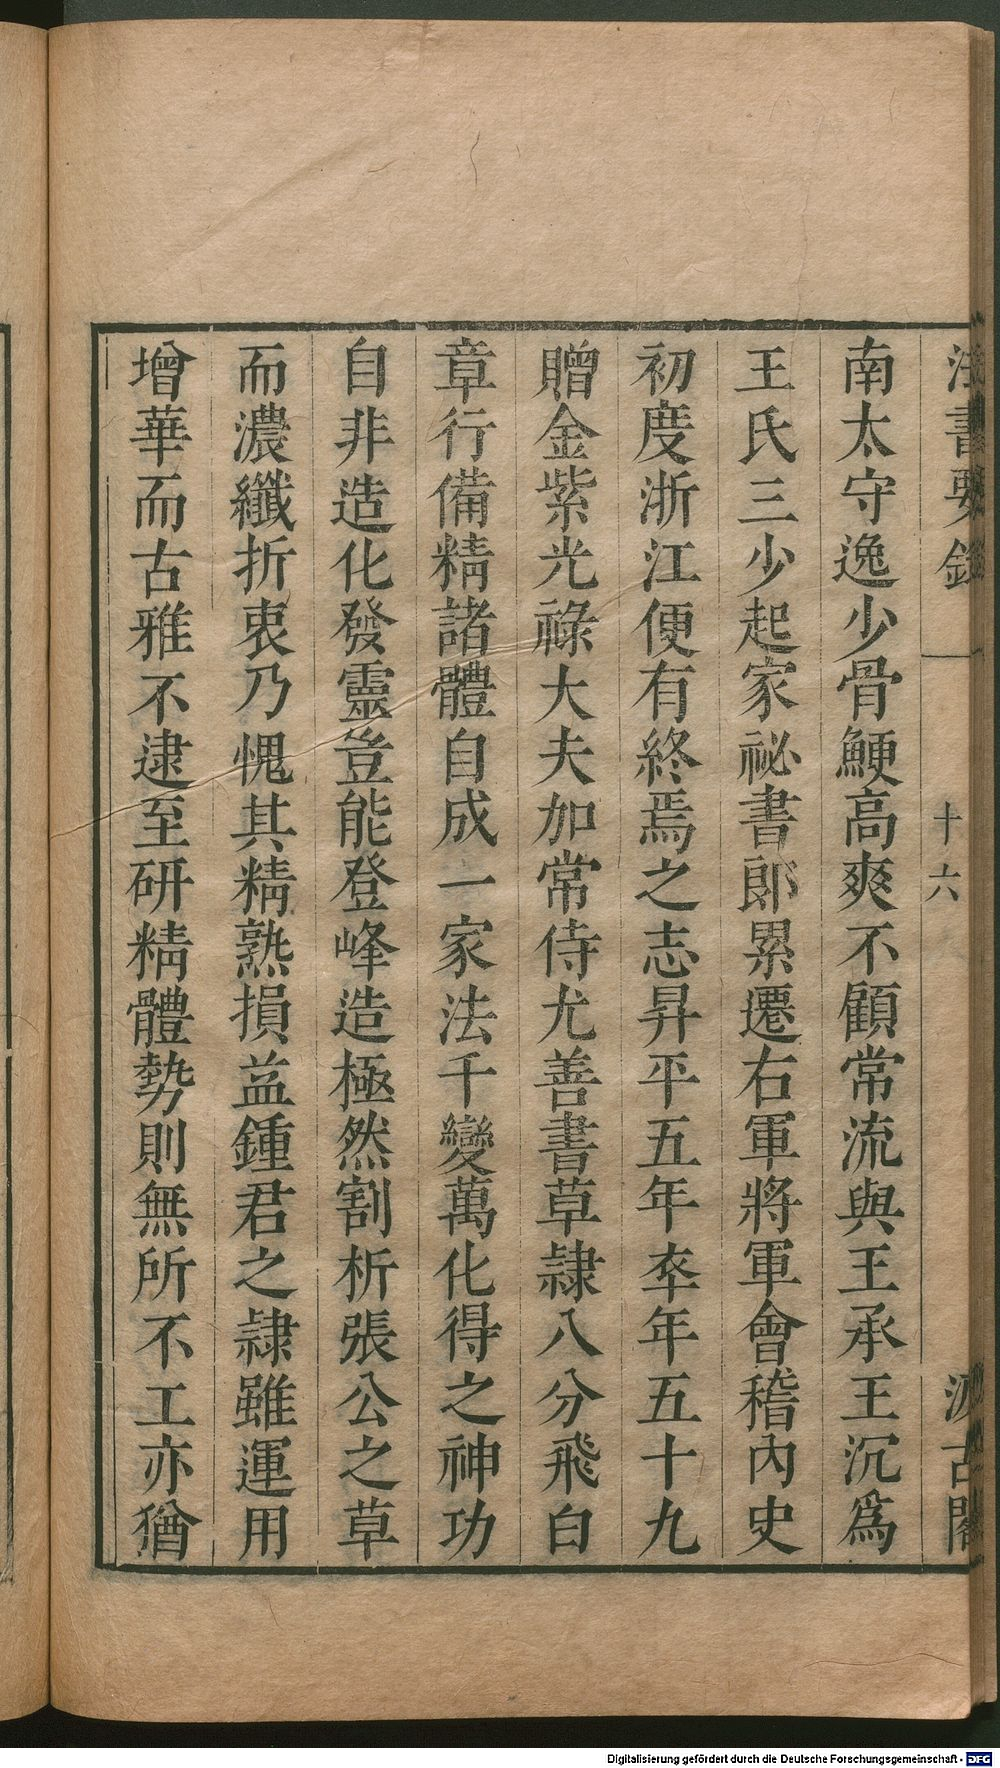 法書要錄
十六
汲古閣
南太守逸少骨鯁高爽不顧常流與王承王沉爲
王氏三少起家祕書郎累遷右軍將軍會稽內史
初度浙江便有終焉之志昇平五年卒年五十九
贈金紫光祿大夫加常侍尤善書草隷八分飛白
章行備精諸體自成一家法千變萬化得之神功
自非造化發靈豈能登峰造極然割析張公之草
而濃纖折衷乃愧其精熟損益鍾君之隷雖運用
增華而古雅不逮至研精體勢則無所不工亦猶
Digitalisierung gefördert durch die Deutsche Forschungsgemeinschaft - DFG